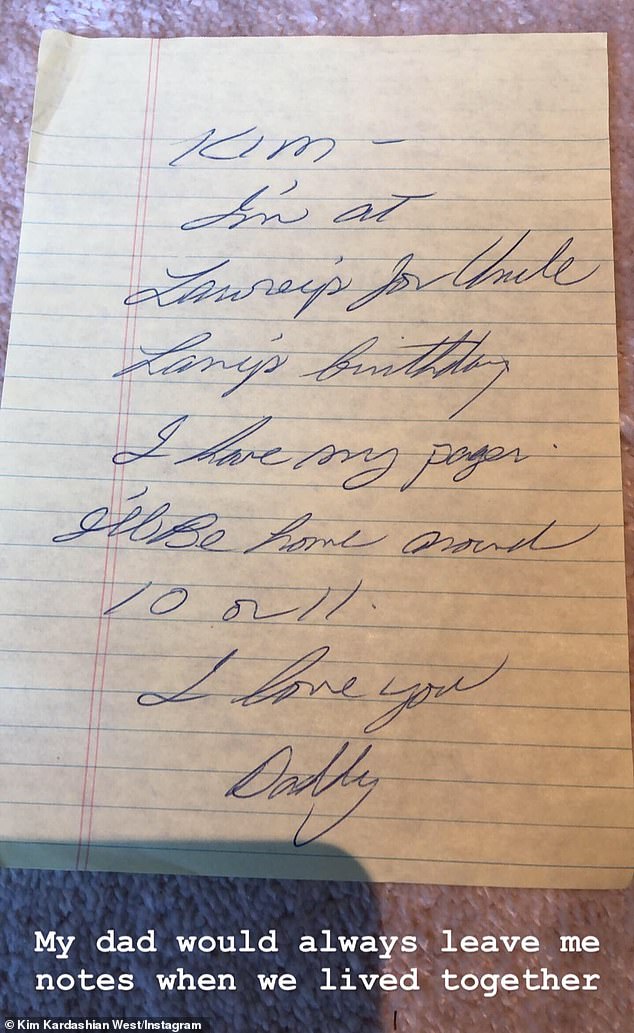 Kim —
I'm at
Lawrey's for Uncle
Larry's birthday
I have my pager.
I'll Be home around
10 or 11.
I love you
Daddy
My dad would always leave me
notes when we lived together
© Kim Kardashian West/Instagram